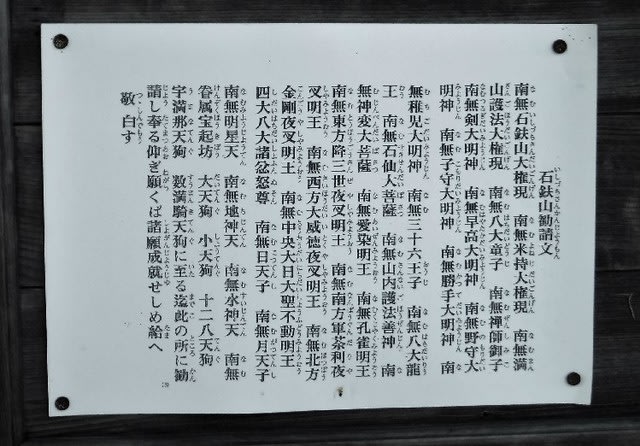 石鈇山勧請文
南無石鈇山大権現　南無米持大権現　南無満
山護法大権現　南無八大童子　南無禅師御子
南無剣大明神　南無早高大明神　南無野守大
明神　南無子守大明神　南無勝手大明神　南
無稚児大明神　南無三十六王子　南無八大龍
王　南無石仙大菩薩　南無山内護法善神　南
無神変大菩薩　南無愛染明王　南無孔雀明王
南無東方降三世夜叉明王　南無南方軍茶利夜
叉明王　南無西方大威徳夜叉明王　南無北方
金剛夜叉明王　南無中央大日大聖不動明王
四大八大諸忿怒尊　南無日天子　南無月天子
南無明星天　南無地神天　南無水神天　南無
眷属宝起坊　大天狗　小天狗　十二八天狗
宇満那天狗　数満騎天狗に至る迄此の所に勧
請し奉る仰ぎ願くば諸願成就せしめ給へ
敬白す